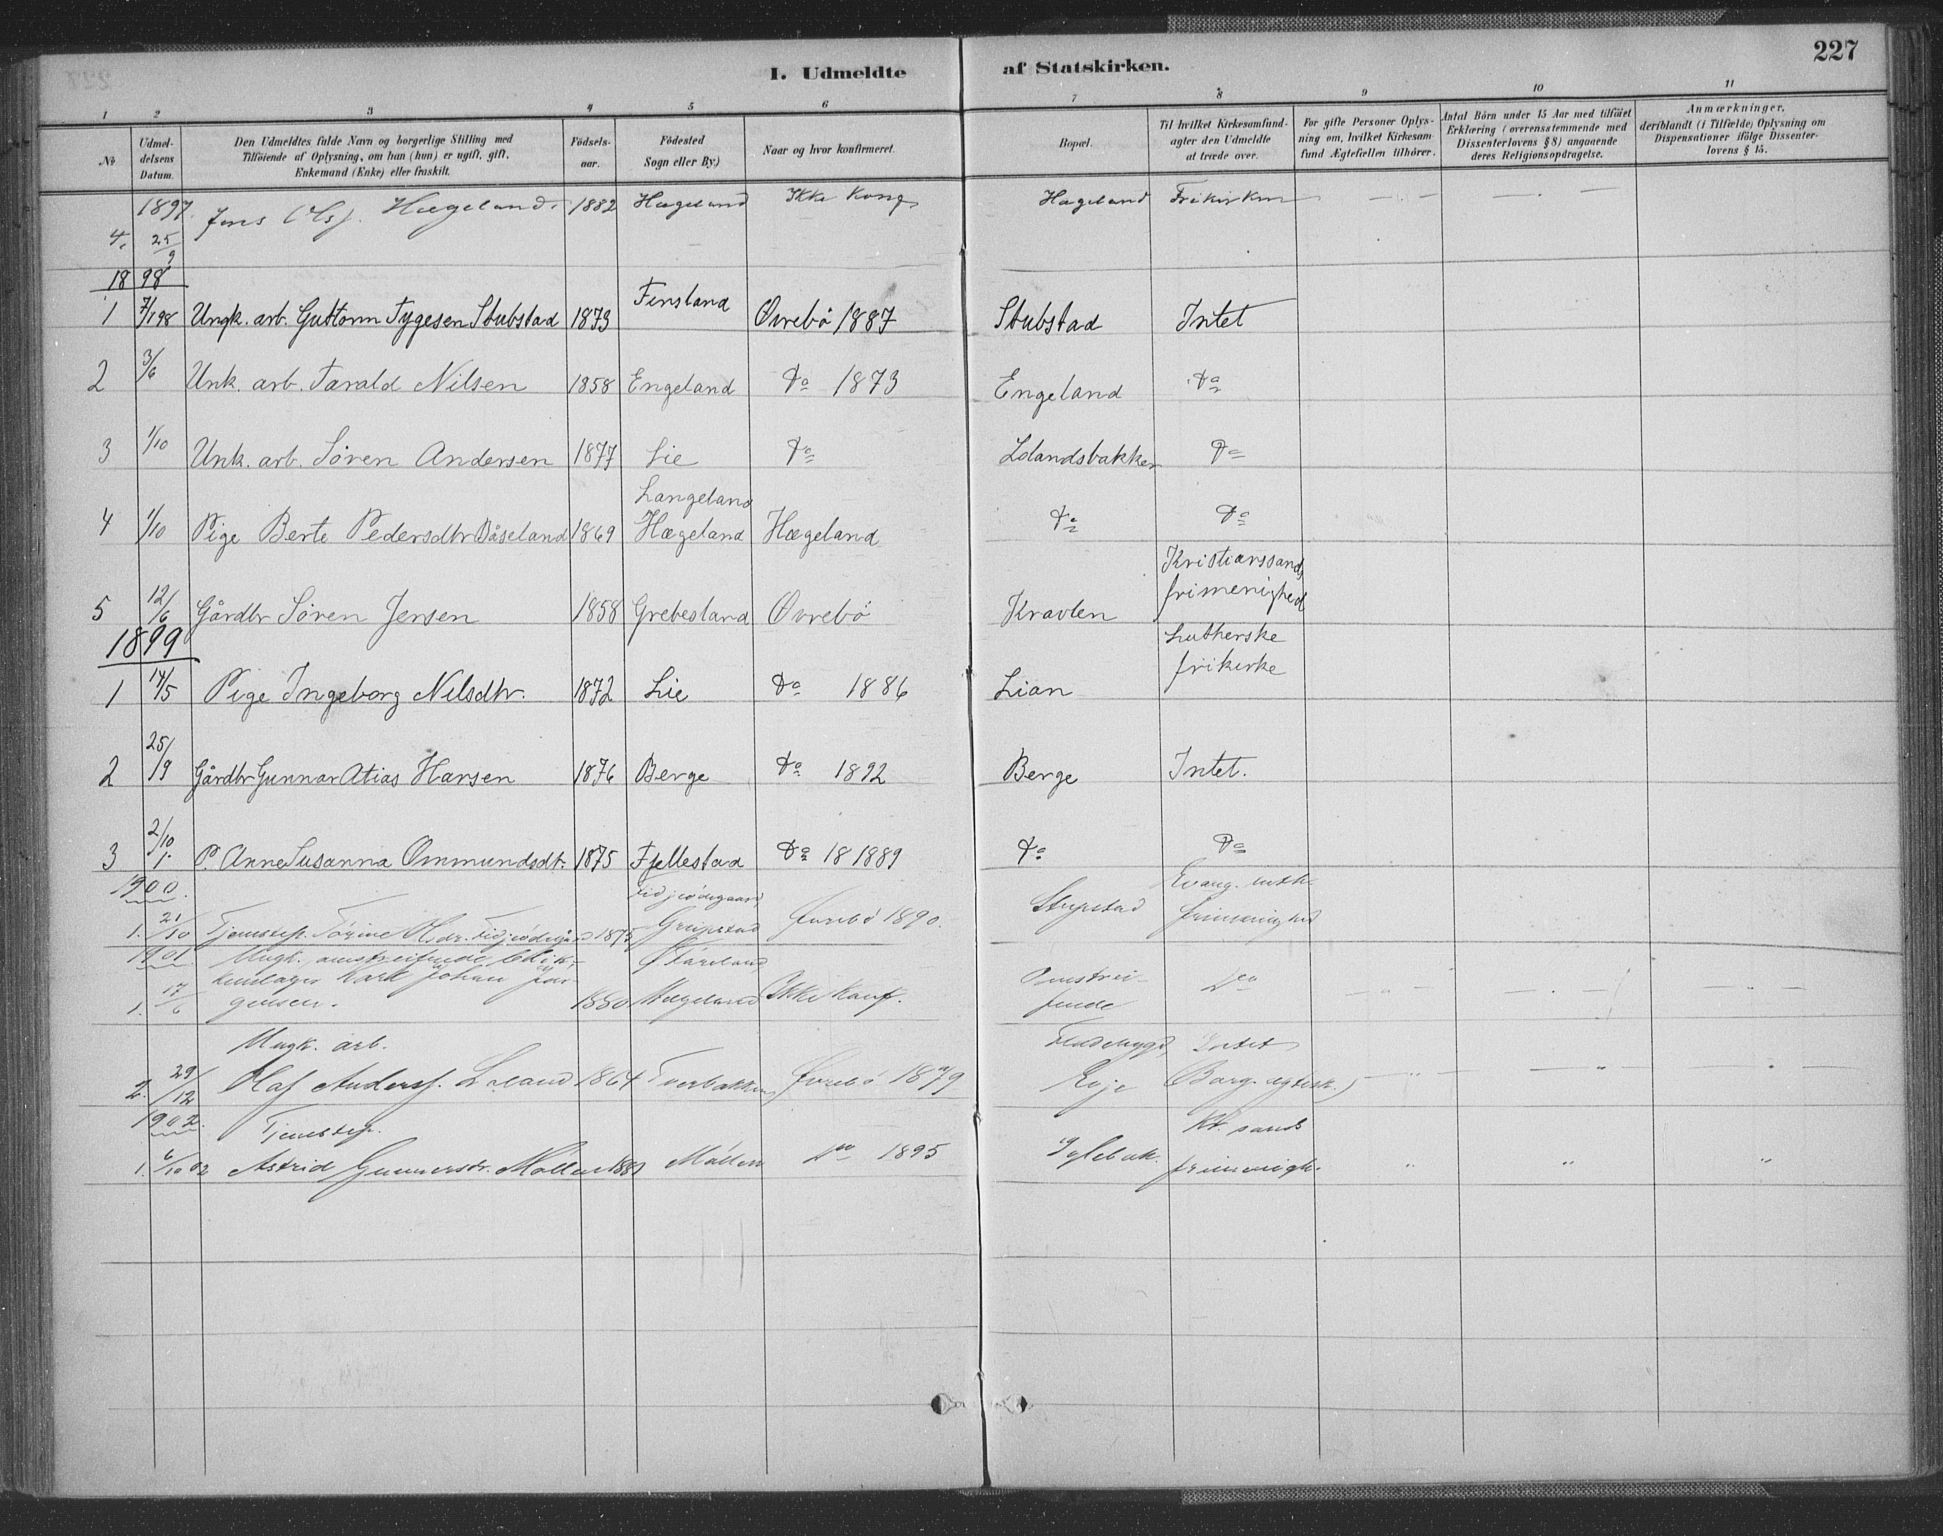 227
I. Udmeldte af Statskirken.
1 2 3 4 5 6 7 8 9 10 11
No
Udmeldelsens Datum.
Den Udmeldtes fulde Navn og borgerlige Stilling med
Tilføiende af Oplysning, om han (hun) er ugift, gift,
Enkemand (Enke) eller fraskilt.
Fødselsaar.
Fødested
Sogn eller By)
Naar og hvor konfirmeret.
Bopæl.
Til hvilket Kirkesamfund-
agter den Udmeldte
at træde over.
For gifte Personer Oplys-
ning om, hvilket Kirkesam-
fund Ægtefællen tilhører.
Antal Börn under 15 Aar med tilföiet
Erklæring (overensstemmende med
Dissenterlovens § 8) angaaende
deres Religionsopdragelse.
Anmærkninger,
deriblandt (i Tilfælde) Oplysning om
Dispensationer ifølge Dissenter-
lovens § 15.
1897
4. 25/9 Jens Olsf. Hægeland. 1882 Hægeland Ikke Konf Hægeland Frikirken
1898
1 7/1 98 Ungk. arb. Guttorm Tygesen Stubstad 1873 Finsland Øvrebö 1887 Stubstad Intet
2 3/6 Unk. arb. Tarald Nilsen 1858 Engeland Do 1873 Engeland Do
3 1/10 Unk. arb. Sören Andersen 1877 Lie Do Lolandsbakken Do
Langeland
4 1/10 Pige Berte Pedersdtr Båseland 1869 Hægeland Hægeland Do Do
Kristianssands
frimenighed
5 12/6 Gårdbr Sören Jensen 1858 Grebesland Øvrebö Kravlen
1899
Lutherske
frikirke
1 14/5 Pige Ingeborg Nilsdtr. 1872 Lie Do 1886 Lian
2 25/9 Gårdbr Gunnar Atias Hansen 1876 Berge Do 1892 Berge Intet.
3 2/10 P. Anne Susanna Ommundsdt. 1875 Fjellestad Do 18 1889 Do Do
1900.
Evang. luth.
1. 21/10 Tjenestep. Torine Olsdr. 1875 Øvrebö 1890. Stupstad frimenighed
1901
Ungk. omstreifende blik-
kenslager Karl Johan Jör-
1. 17/6 gensen. 1880 Hægeland Ikke Konf. Omstrei-
fende Do
Ungk. arb. Intet
2. 29/12 Olaf Andersf. 1864 Tverbakken Øvrebö 1879 Evje
1902.
Tjenestep. Kr. sands
1. 6/10 02 Astrid Gunnersdr. Möllen Möllen Do 1895 frimenigh.